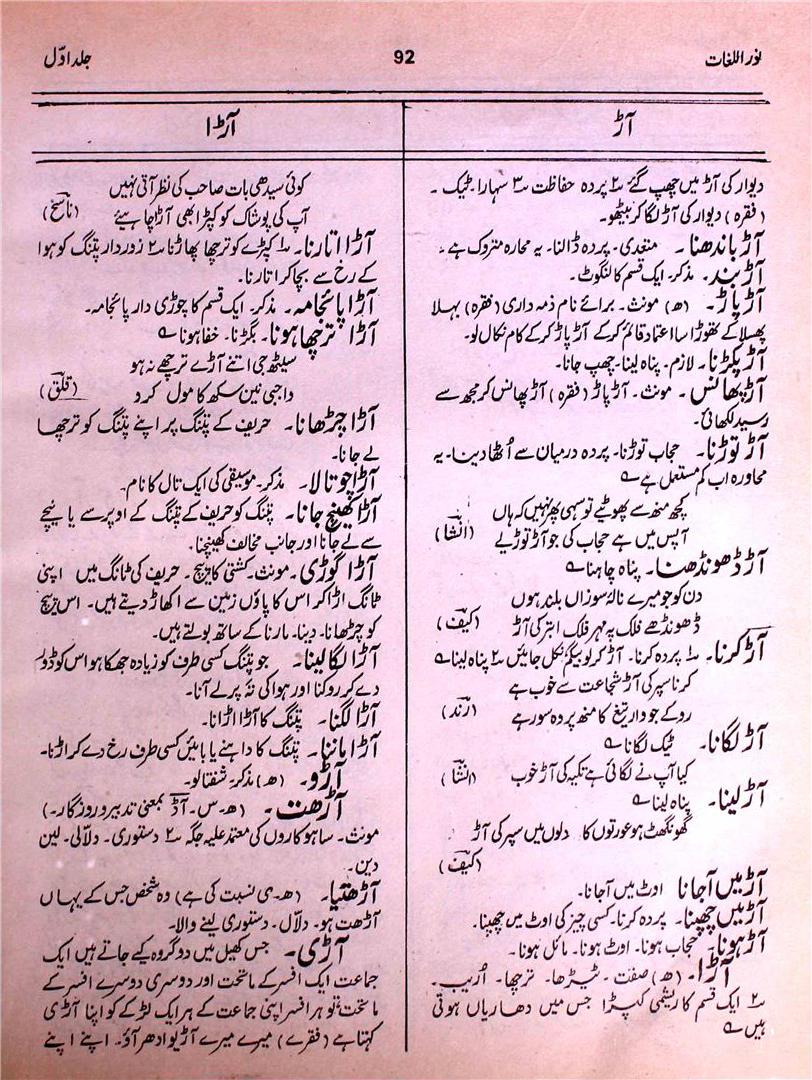 نور اللغات
92
جلد اوّل
آڑ
آڑا
دیوار کی آڑ میں چھپ گئے ۲؎ پردہ حفاظت ۳؎ سہارا۔ ٹیک۔
(فقرہ) دیوار کی آڑ لگا کر بیٹھو۔
آڑ باندھنا۔ متعدی۔ پردہ ڈالنا۔ یہ محارہ متروک ہے۔
آڑ بند۔ مذکر۔ ایک قسم کا لنگوٹ۔
آڑ پاڑ۔ (ھ) مونث۔ برائے نام ذمہ داری (فقرہ) بہلا
پھسلا کے تھوڑا سا اعتماد قائم کر کے آڑ پاڑ کر کے کام نکال لو۔
آڑ پکڑنا۔ لازم۔ پناہ لینا۔ چھپ جانا۔
آڑ پھانس۔ مونث۔ آڑ پاڑ (فقرہ) آڑ پھانس کر مجھ سے
رسید لکھائی۔
آڑ توڑنا۔ حجاب توڑنا۔ پردہ درمیان سے اُٹھا دینا۔ یہ
محاورہ اب کم مستعمل ہے ؎
کچھ منھ سے پھوٹیے تو سہی پھر نہیں کہ ہاں
آپس میں ہے حجاب کی جو آڑ توڑیے (انشا)
آڑ ڈھونڈھنا۔ پناہ چاہنا ؎
دن کو جو میرے نالۂ سوزاں بلند ہوں
ڈھونڈھے فلک پہ مہر فلک ابتر کی آڑ (کیف)
آڑ کرنا۔ ۱؎ پردہ کرنا۔ آڑ کر لو بیگم نکل جائیں ۲؎ پناہ لینا ؎
کرنا سپر کی آڑ شجاعت سے خوب ہے
روکے جو وار تیغ کا منھ پر وہ سور ہے (رند)
آڑ لگانا۔ ٹیک لگانا ؎
کیا آپ نے لگائی ہے تکیہ کی آڑ خوب (انشا)
آڑ لینا۔ پناہ لینا ؎
گھونگھٹ ہو عورتوں کا دلوں میں سپر کی آڑ
(کیف)
آڑ میں آجانا اوٹ میں آجانا۔
آڑ میں چھپنا۔ پردہ کرنا۔ کسی چیز کی اوٹ میں چھپنا۔
آڑ ہونا۔ حجاب ہونا۔ اوٹ ہونا۔ مائل ہونا۔
آڑا۔ (ھ) صفت۔ ٹیڑھا۔ ترچھا۔ اُریب۔
۲؎ ایک قسم کا ریشمی کپڑا جس میں دھاریاں ہوتی
ہیں ؎
کوئی سیدھی بات صاحب کی نظر آتی نہیں
آپ کی پوشاک کو کپڑا بھی آڑا چاہیئے (ناسخ)
آڑا اتارنا۔ ۱؎ کپڑے کو ترچھا پھاڑنا ۲؎ زوردار پتنگ کو ہوا
کے رخ سے بچا کر اتارنا۔
آڑا پائجامہ۔ مذکر۔ ایک قسم کا چوڑی دار پائجامہ۔
آڑا ترچھا ہونا۔ بگڑنا۔ خفا ہونا ؎
سیٹھ جی اتنے آڑے ترچھے نہ ہو
واجبی نین سکھ کا مول کرو (قلق)
آڑا چڑھانا۔ حریف کے پتنگ پر اپنے پتنگ کو ترچھا
لے جانا۔
آڑا چوتالا۔ مذکر۔ موسیقی کی ایک تال کا نام۔
آڑا کھینچ جانا۔ پتنگ کو حریف کے پتنگ کے اوپر سے یا نیچے
سے لے جانا اور جانب مخالف کھینچنا۔
آڑا گوڑی۔ مونث۔ کشتی کا پیچ۔ حریف کی ٹانگ میں اپنی
ٹانگ اڑا کر اس کا پاؤں زمین سے اکھاڑ دیتے ہیں۔ اس پیچ
کو چڑھانا۔ دینا۔ مارنا کے ساتھ بولتے ہیں۔
آڑا لگا لینا۔ جو پتنگ کسی طرف کو زیادہ جھکا ہو اس کو ڈور
دے کر روکنا اور ہوا کی نہ پر لے آنا۔
آڑا لگنا۔ پتنگ کا آڑا اڑانا۔
آڑا ماننا۔ پتنگ کا داہنے یا بائیں کسی طرف رخ دے کر اڑنا۔
آڑو۔ (ھ) مذکر۔ شفتالو۔
آڑھت۔ (ھ۔ س۔ آڈ بمعنی تدبیر و روزگار۔)
مونث۔ ساہوکاروں کی معتمد علیہ جگہ ۲؎ دستوری۔ دلاّلی۔ لین
دین۔
آڑھتیا۔ (ھ۔ ی نسبت کی ہے) وہ شخص جس کے یہاں
آڑھت ہو۔ دلاّل۔ دستوری لینے والا۔
آڑی۔ جس کھیل میں دو گروہ کیے جاتے ہیں ایک
جماعت ایک افسر کے ماتحت اور دوسری دوسرے افسر کے
ماتحت تو ہر افسر اپنی جماعت کے ہر ایک لڑکے کو اپنا آڑی
کہتا ہے (فقرے) میرے میرے آڑیو ادھر آؤ۔ اپنے اپنے